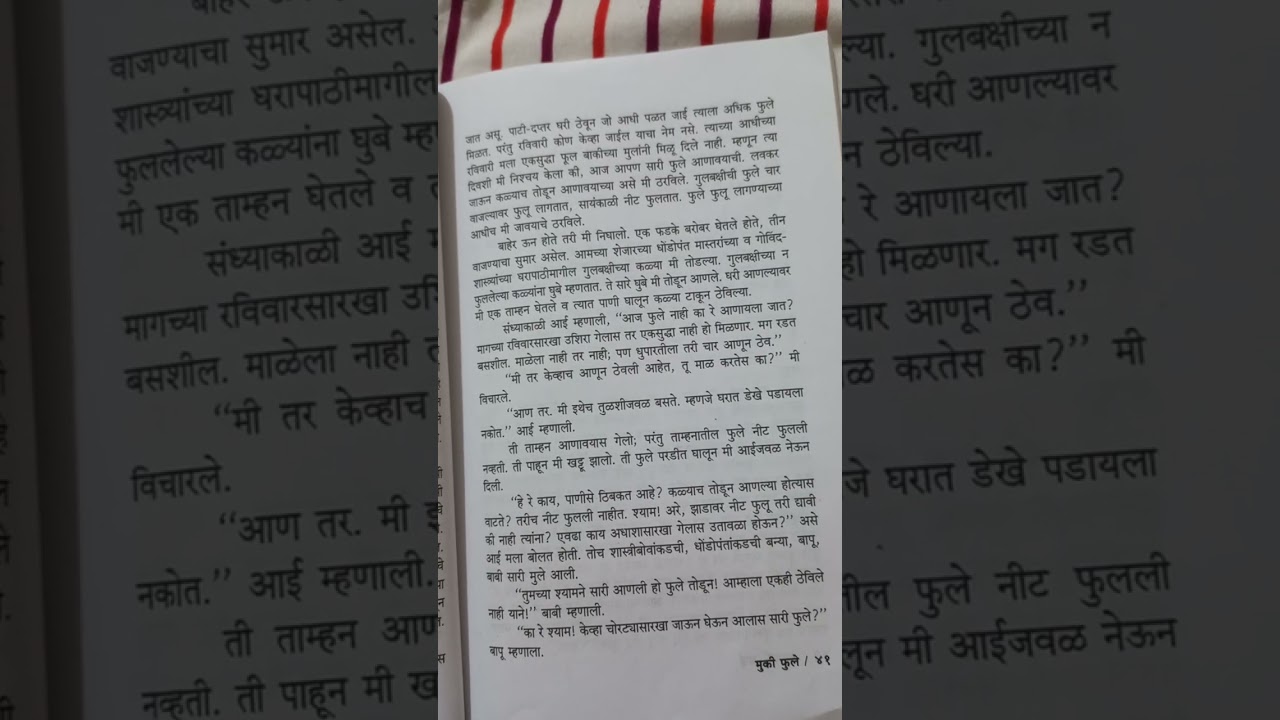 जात असू. पाटी-दप्तर घरी ठेवून जो आधी पळत जाई त्याला अधिक फुले
मिळत. परंतु रविवारी कोण केव्हा जाईल याचा नेम नसे. त्याच्या आधीच्या
रविवारी मला एकसुद्धा फूल बाकीच्या मुलांनी मिळू दिले नाही. म्हणून त्या
दिवशी मी निश्चय केला की, आज आपण सारी फुले आणावयाची. लवकर
जाऊन कळ्याच तोडून आणावयाच्या असे मी ठरविले. गुलबक्षीची फुले चार
वाजल्यावर फुलू लागतात, सायंकाळी नीट फुलतात. फुले फुलू लागण्याच्या
आधीच मी जावयाचे ठरविले.
बाहेर ऊन होते तरी मी निघालो. एक फडके बरोबर घेतले होते, तीन
वाजण्याचा सुमार असेल. आमच्या शेजारच्या धोंडोपंत मास्तरांच्या व गोविंद-
शास्त्र्यांच्या घरापाठीमागील गुलबक्षीच्या कळ्या मी तोडल्या. गुलबक्षीच्या न
फुललेल्या कळ्यांना घुबे म्हणतात. ते सारे घुबे मी तोडून आणले. घरी आणल्यावर
मी एक ताम्हन घेतले व त्यात पाणी घालून कळ्या टाकून ठेविल्या.
संध्याकाळी आई म्हणाली, “आज फुले नाही का रे आणायला जात?
मागच्या रविवारसारखा उशिरा गेलास तर एकसुद्धा नाही हो मिळणार. मग रडत
बसशील. माळेला नाही तर नाही; पण धुपारतीला तरी चार आणून ठेव.”
“मी तर केव्हाच आणून ठेवली आहेत, तू माळ करतेस का?” मी
विचारले.
“आण तर. मी इथेच तुळशीजवळ बसते. म्हणजे घरात डेखे पडायला
नकोत.” आई म्हणाली.
ती ताम्हन आणावयास गेलो; परंतु ताम्हनातील फुले नीट फुलली
नव्हती. ती पाहून मी खट्टू झालो. ती फुले परडीत घालून मी आईजवळ नेऊन
दिली.
“हे रे काय, पाणीसे ठिबकत आहे? कळ्याच तोडून आणल्या होत्यास
वाटते? तरीच नीट फुलली नाहीत. श्याम! अरे, झाडावर नीट फुलू तरी द्यावी
की नाही त्यांना? एवढा काय अधाशासारखा गेलास उतावळा होऊन?” असे
आई मला बोलत होती. तोच शास्त्रीबोवांकडची, धोंडोपंतांकडची बन्या, बापू,
बाबी सारी मुले आली.
“तुमच्या श्यामने सारी आणली हो फुले तोडून! आम्हाला एकही ठेविले
नाही याने!” बाबी म्हणाली.
“का रे श्याम! केव्हा चोरट्यासारखा जाऊन घेऊन आलास सारी फुले?”
बापू म्हणाला.
मुकी फुले / ४१